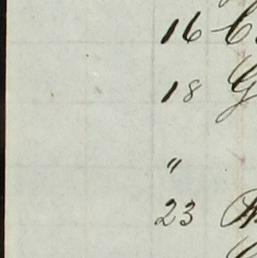 16
18
"
23